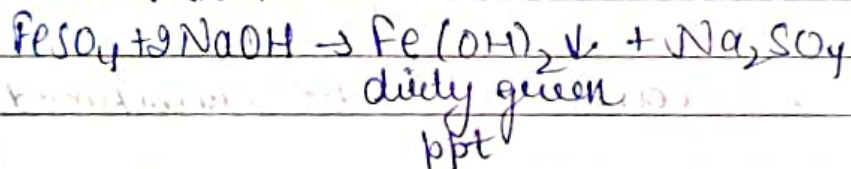 FeSO₄ + 2NaOH → Fe(OH)₂↓ + Na₂SO₄
dirty green
ppt